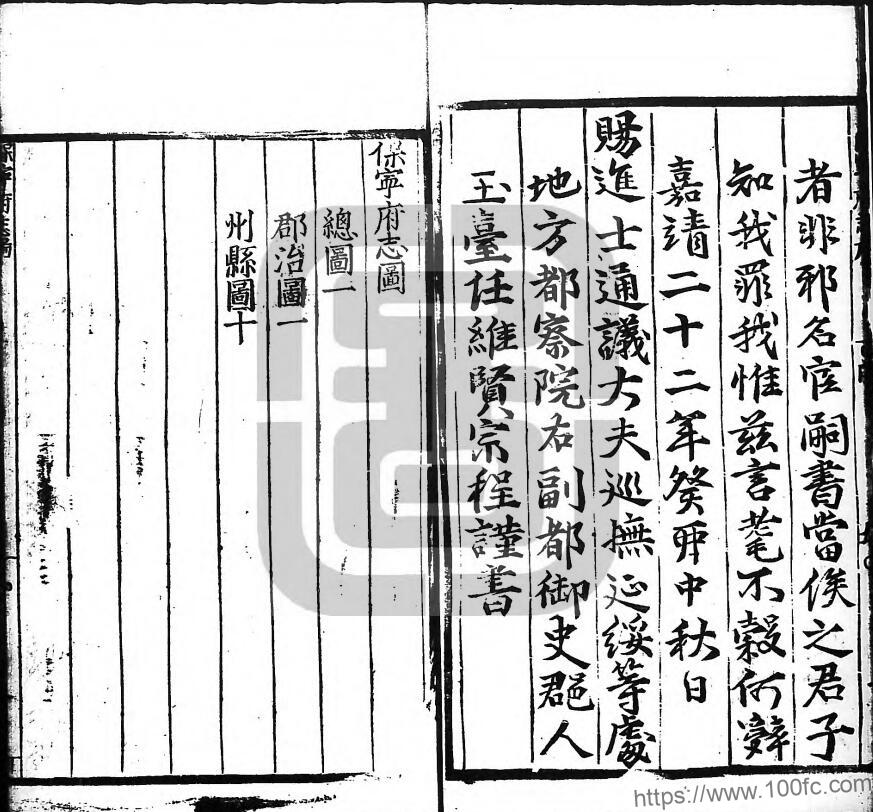 者非邪名宦嗣書當俟之君子
知我罪我惟兹言耄不穀何辭
嘉靖二十二年癸卯中秋日
賜進士通議大夫巡撫延綏等處
地方都察院右副都御史郡人
玉臺任維賢宗程謹書
保寧府志圖
總圖一
郡治圖一
州縣圖十
保寧府志圖
https://www.100fc.com